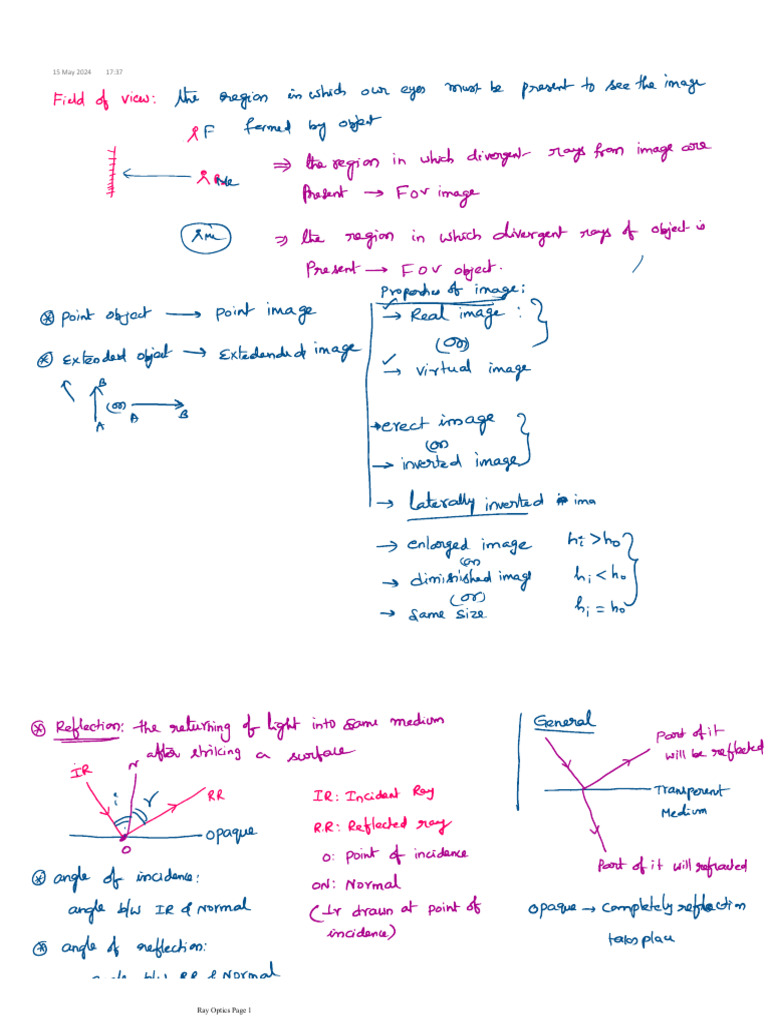 15 May 2024 17:37
Field of view: the region in which our eyes must be present to see the image
formed by object
F
⇒ the region in which divergent rays from image are
Present → FOV image
⇒ the region in which divergent rays of object is
Present → FOV object.
⊛ Point object → Point image
⊛ Extended object → Extedended image
B
A
(or)
A B
Properties of image:
→ Real image :
(or)
→ virtual image
→ erect image
(or)
→ inverted image
→ Laterally inverted ima
→ enlarged image hi > ho
(or)
→ diminished image hi < ho
(or)
→ Same size hi = ho
⊛ Reflection: the returning of light into same medium
after striking a surface
IR N i r RR
opaque
O
IR: Incident Ray
R.R: Reflected ray
O: Point of incidence
ON: Normal
(⊥r drawn at point of
incidence)
⊛ angle of incidence:
angle b/w IR & Normal
⊛ angle of reflection:
angle b/w RR & Normal
General
Part of it
will be reflected
Transparent
Medium
Part of it will refracted
Opaque → Completely reflection
takes place
Ray Optics Page 1